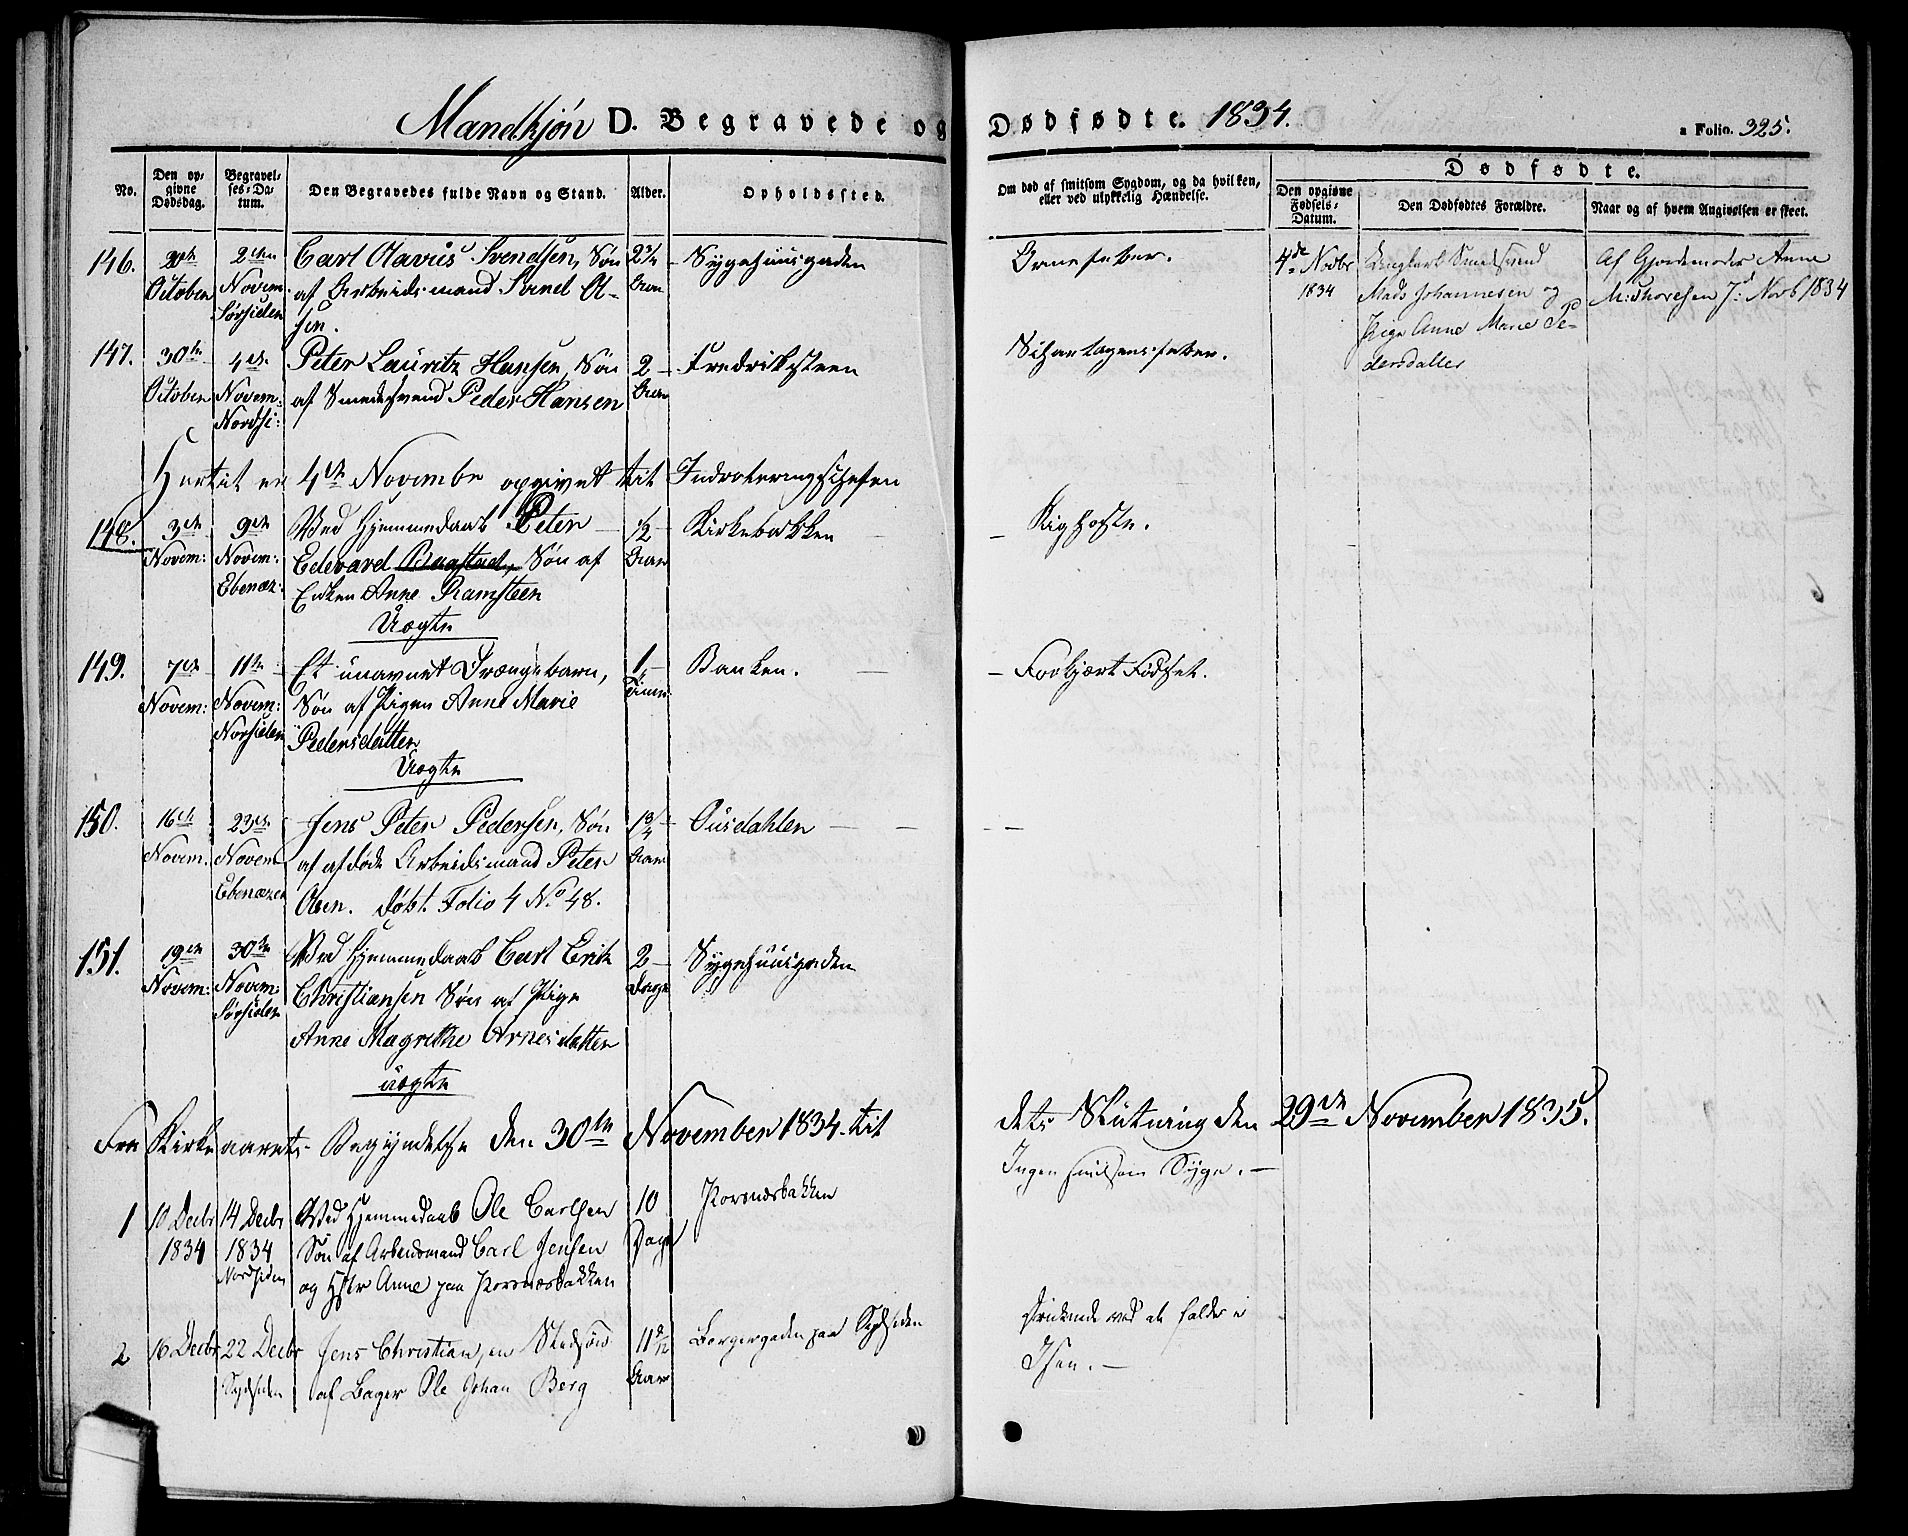 Mandkjön D. Begravede og
No.
Den op-
givne
Dødsdag.
Begravel-
ses-Da-
tum.
Den Begravedes fulde Navn og Stand.
Alder.
Opholdssted.
146.
October
2den
Novem
Sørsiden
Carl Olavus Svendsen, Søn
af Arbeidsmand Svend Ol-
sen.
Aar
Sygehuusgaden
147.
30te
October
4de
Novem:
Nordsi:
Peter Lauritz Hansen, Søn
af Smedesvend Peder Hansen
2
Aar
Fredriksteen
Hertil er 4de Novembr opgivet til Indroteringschefen
148.
3de
Novem:
9de
Novem:
Ebenæz:
Ved Hjemmedaab Peter
Edevard Søn af
Enken Anne Ramsteen
Uægte
1/2
Aar
Kirkebakken
149.
7de
Novem:
11te
Novem:
Norsiden
Et unavnet Drængebarn,
Søn af Pigen Anne Marie
Pedersdatter
Uægte
1
Banken.
150.
16de
Novem.
23de
Novem
Ebenæzer
Jens Peter Pedersen, Søn
af afdøde Arbeidsmand Peter
Olsen. døbt. Folio 4 No 48.
1 3/4
Aar
Ousdahlen
151.
19de
Novem:
30te
Novem:
Sørsiden
Ved Hjemmedaab Carl Erik
Christiansen Søn af Pige
Anne Magrethe Arnesdatter
uægte
2
Dage
Sygehuusgaden
Fra Kirkeaarets Begyndelse den 30te November 1834. til
1
10 Decbr
1834
14 Decbr
1834
Nordsiden
Ved Hjemmedaab Ole Carlsen
Søn af Arbeidsmand Carl Jensen
og Hstr Anne paa Korsnæsbakken
10
Dage
Korsnæsbakken
2
16 Decbr
22 Decbr
Sydsiden
Jens Christian, en Stedsøn
af Bager Ole Johan Berg
11
Aar
Borgergaden paa Sydsiden
Dødfødte. 1834.
a Folio. 325.
Om død af smitsom Sygdom, og da hvilken,
eller ved ulykkelig Hændelse.
Dødfødte.
Den opgivne
Fødsels-
Datum.
Den Dødfødtes Forældre.
Naar og af hvem Angivelsen er skeet.
Ormefeber.
4de Novbr
1834
Mads Johannesen og
Pige Anne Marie Pe-
dersdatter
Af Gjordemoder Anne
7d Novb 1834
Kighoste.
Forkjært Fødsel.
dets Slutning den 29de November 1835.
Ingen smitsom Syge.
druknede ved at falde i
Isen.